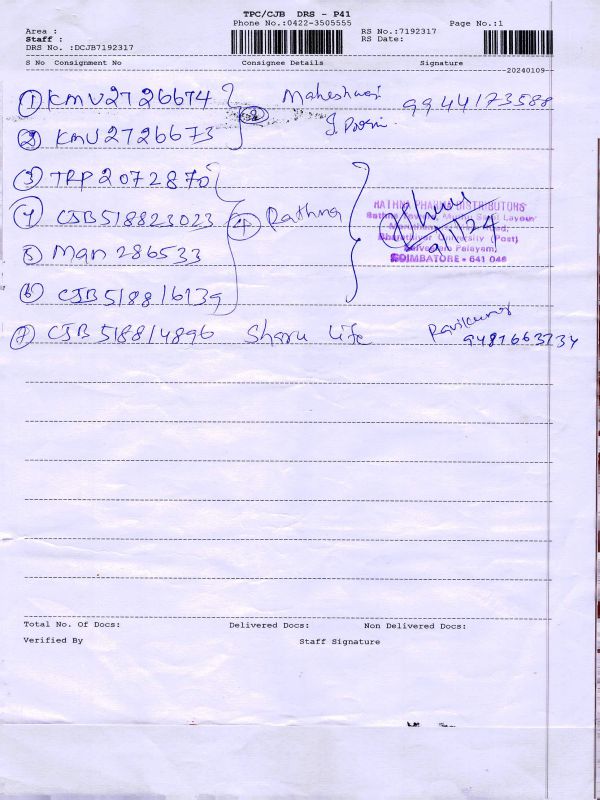 TPC/CJB DRS - P41
Phone No.:0422-3505555 Page No.:1
Area :
Staff : RS No.:7192317
DRS No. :DCJB7192317 RS Date:
S No Consignment No Consignee Details Signature
20240109
① KMU2726674 ② Maheshwari 9944173588
② KMU2726673
③ TRP2072870
④ CJB518823023 ④ Rathna
⑤ Man 286533
⑥ CJB518816139
RATHNA PHARMA DISTRIBUTORS
Bharathiyar University (Post)
COIMBATORE - 641 046
9/1/24
⑦ CJB518814896 Sharu Life Ravikumar
Total No. Of Docs: Delivered Docs: Non Delivered Docs:
Verified By Staff Signature